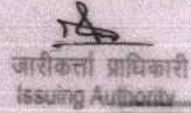 जारीकर्ता प्राधिकारी
Issuing Authority